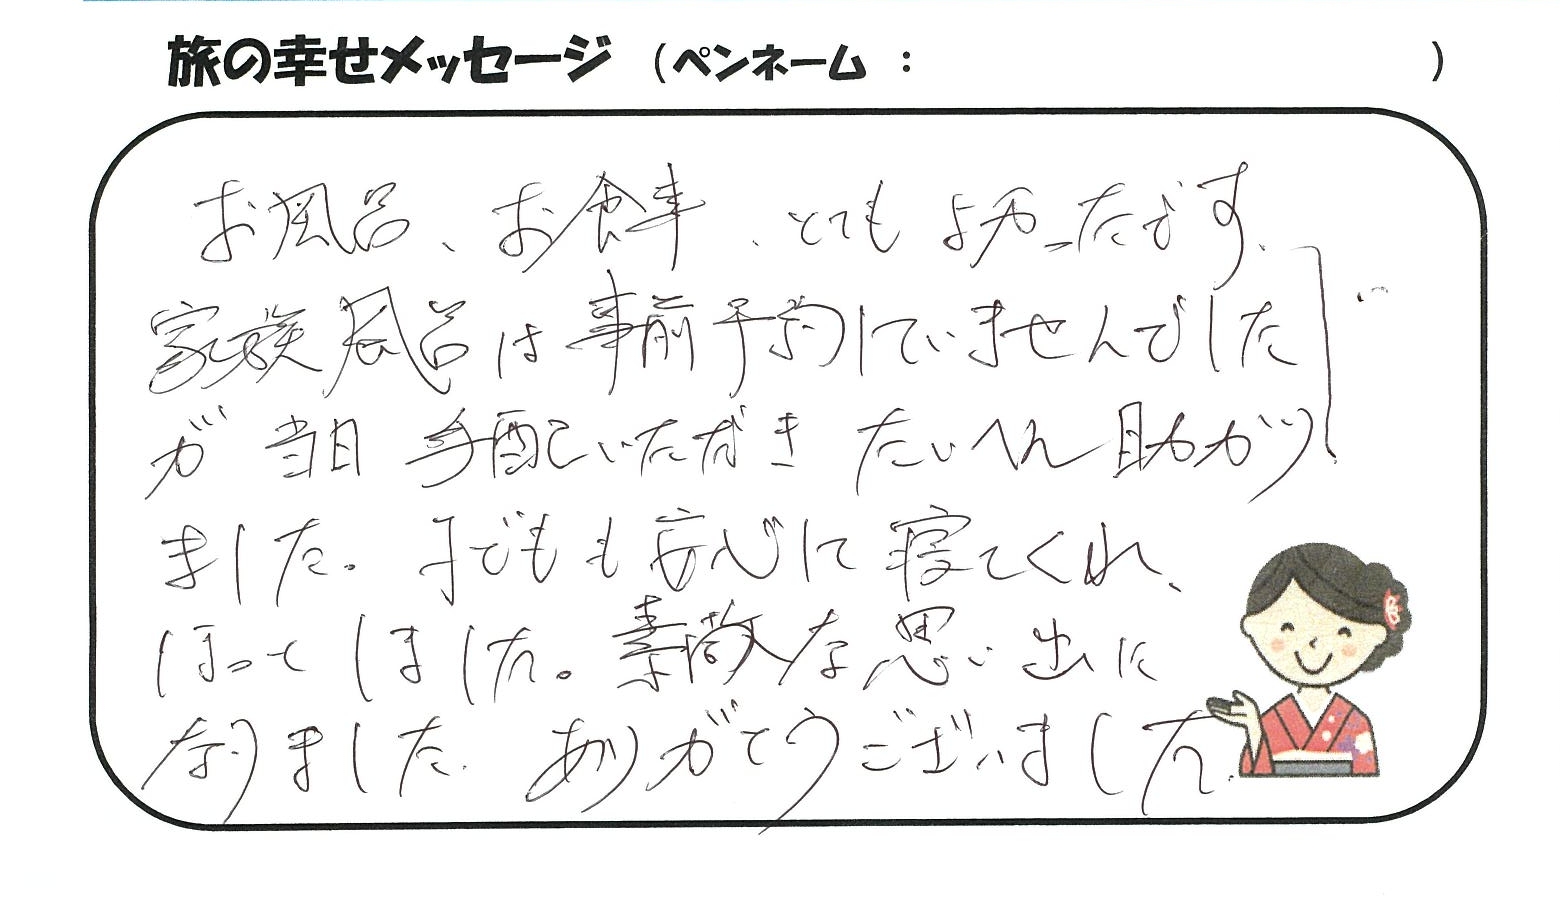 旅の幸せメッセージ (ペンネーム : )
お風呂、お食事、とてもよかったです。
家族風呂は事前予約していませんでした
が当日手配いただきたいへん助かり
ました。子どもも安心して寝てくれ、
ほっとしました。素敵な思い出に
なりました。ありがとうございました。